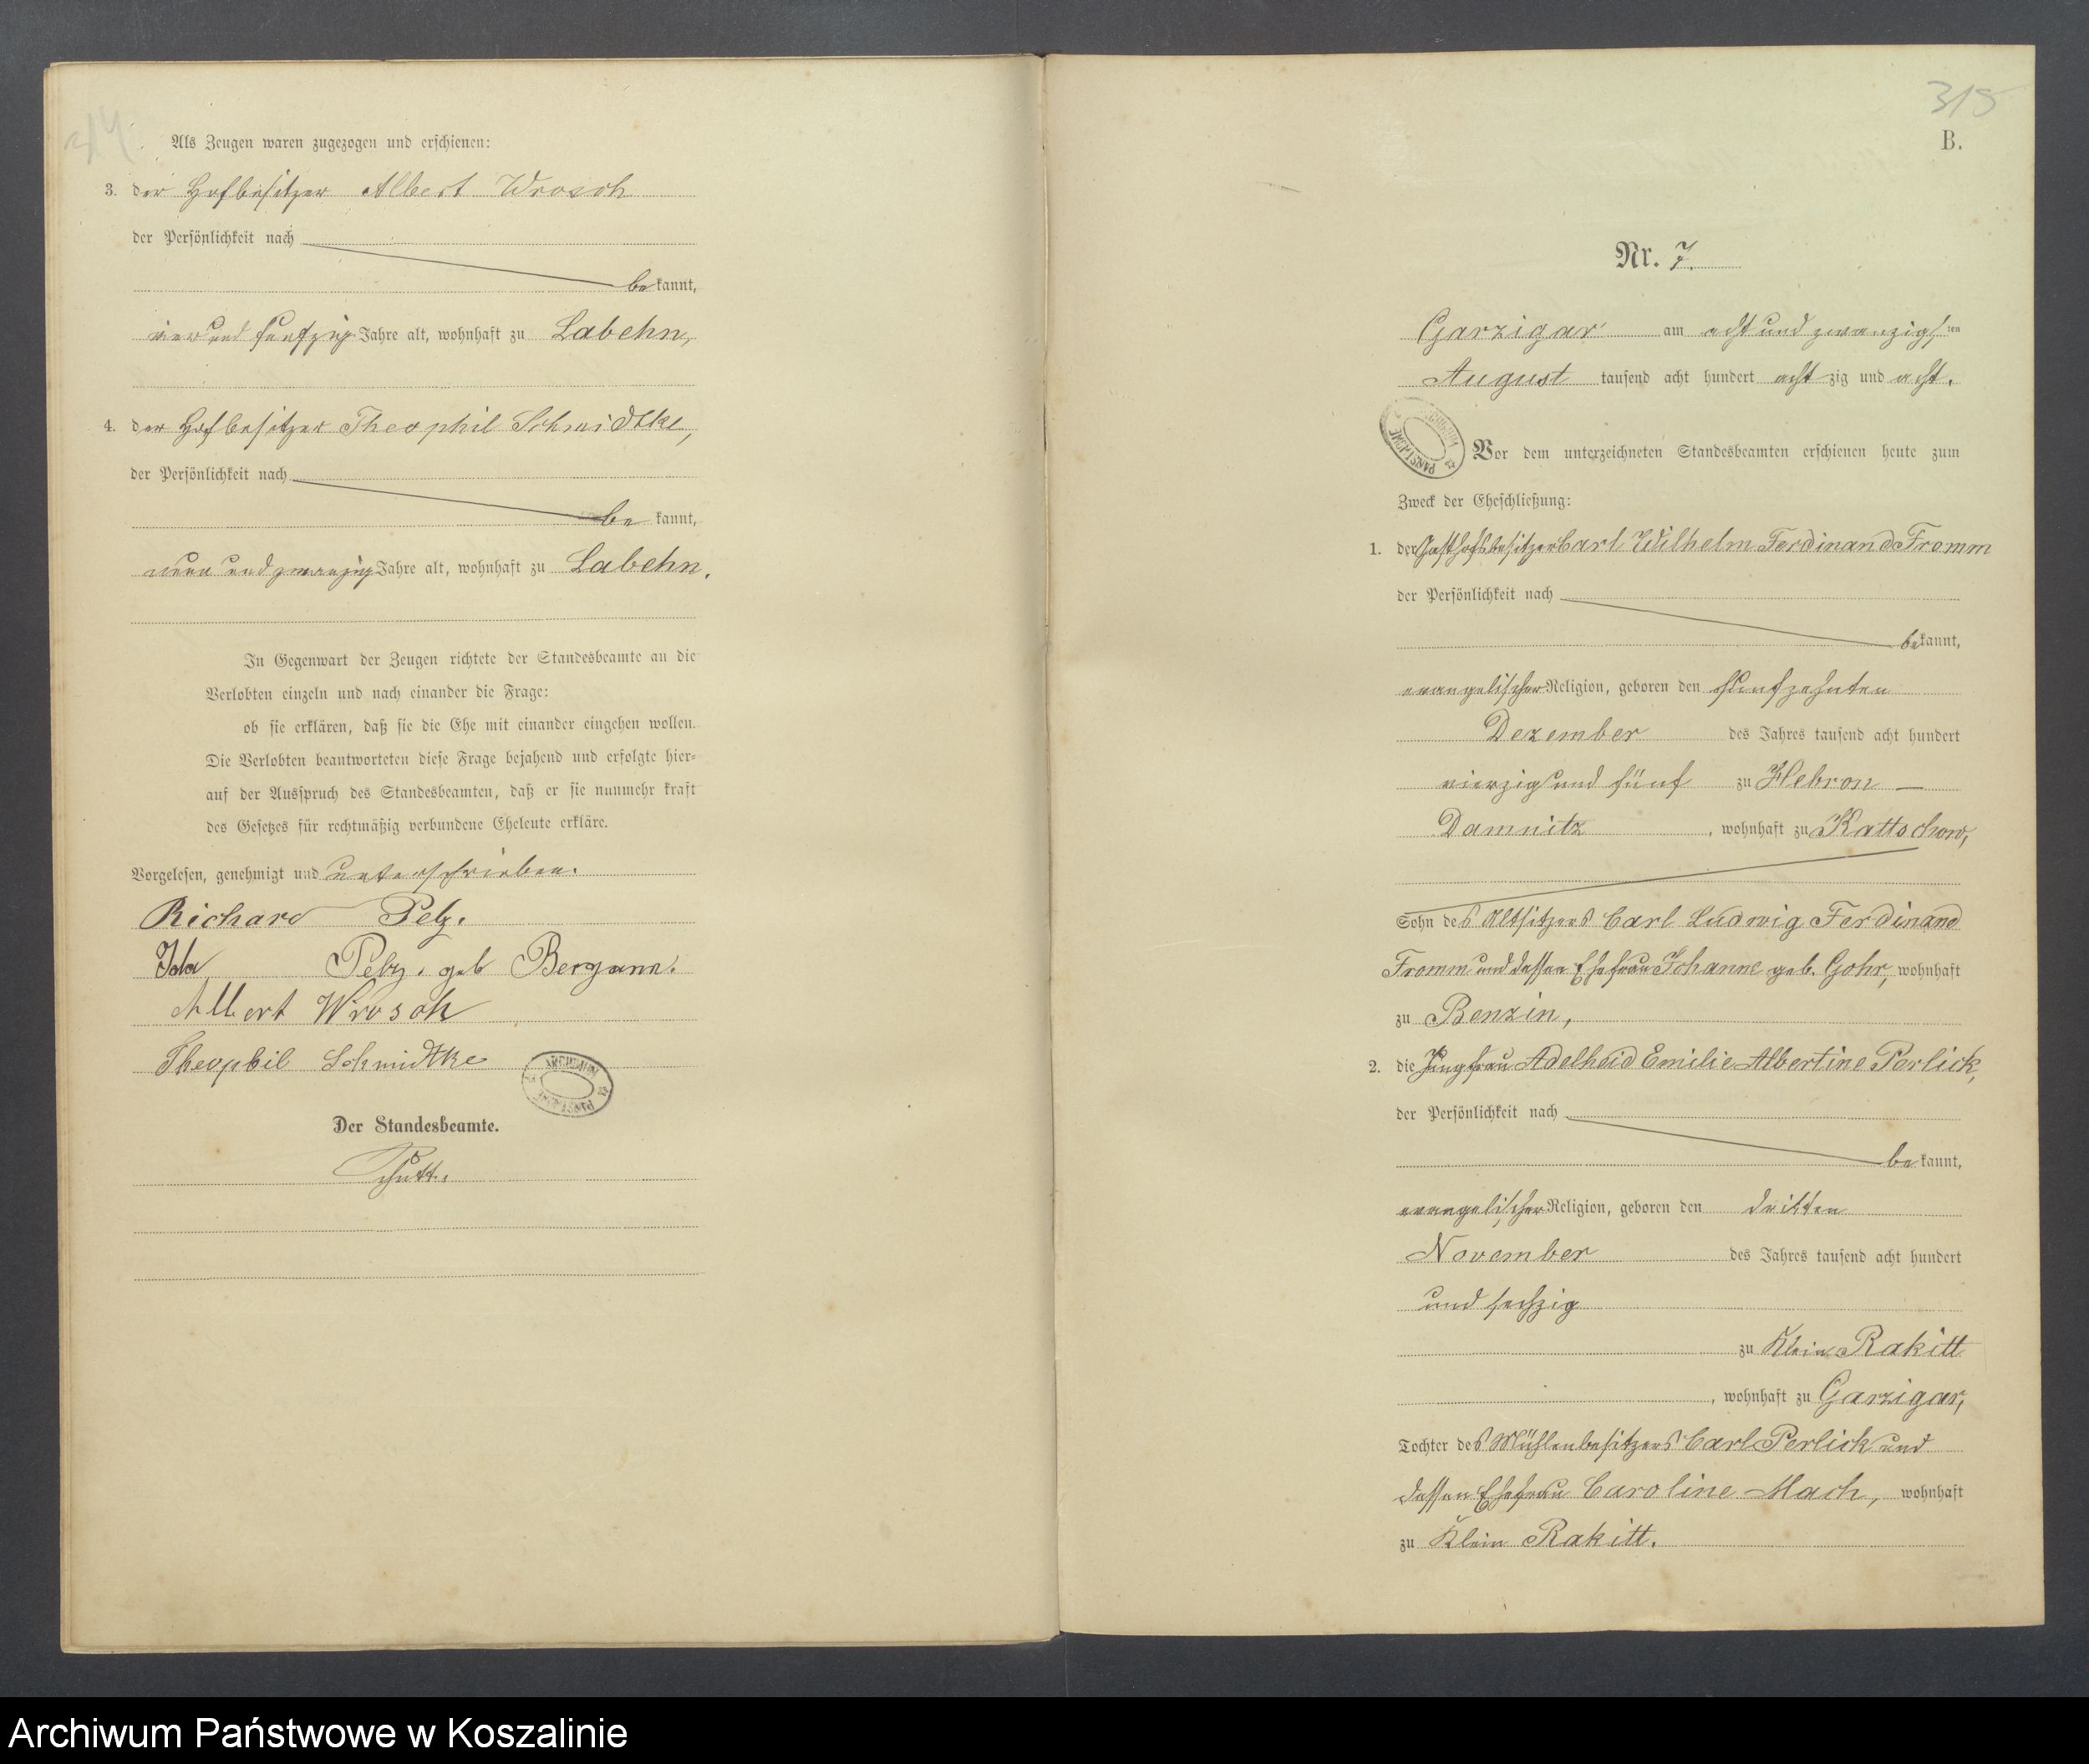 314
Als Zeugen waren zugezogen und erschienen:
3. der Hofbesitzer Albert Wrosch
der Persönlichkeit nach
bekannt,
vier und fünfzig Jahre alt, wohnhaft zu Labehn,
4. der Hofbesitzer Theophil Schmidtke,
der Persönlichkeit nach
be kannt,
neun und zwanzig Jahre alt, wohnhaft zu Labehn.
In Gegenwart der Zeugen richtete der Standesbeamte an die
Verlobten einzeln und nach einander die Frage:
ob sie erklären, daß sie die Ehe mit einander eingehen wollen.
Die Verlobten beantworteten diese Frage bejahend und erfolgte hier-
auf der Ausspruch des Standesbeamten, daß er sie nunmehr kraft
des Gesetzes für rechtmäßig verbundene Eheleute erkläre.
Vorgelesen, genehmigt und unterschrieben.
Richard Pelz.
Ida Pelz. geb Bergann.
Albert Wrosch
Theophil Schmidtke
Der Standesbeamte.
315
B.
Nr. 7.
Garzigar am acht und zwanzigsten
August tausend acht hundert achtzig und acht.
Vor dem unterzeichneten Standesbeamten erschienen heute zum
Zweck der Eheschließung:
1. der Gasthofsbesitzer Carl Wilhelm Ferdinand Fromm
der Persönlichkeit nach
bekannt,
evangelischer Religion, geboren den fünfzehnten
Dezember des Jahres tausend acht hundert
vierzig und fünf zu Hebron —
Damnitz, wohnhaft zu Kattschow,
Sohn des Altsitzers Carl Ludwig Ferdinand
Fromm und dessen Ehefrau Johanne geb. Gohr, wohnhaft
zu Benzin,
2. die Jungfrau Adelheid Emilie Albertine Perlick,
der Persönlichkeit nach
bekannt,
evangelischer Religion, geboren den dritten
November des Jahres tausend acht hundert
und sechzig
zu Klein Rakitt
, wohnhaft zu Garzigar,
Tochter des Mühlenbesitzers Carl Perlick und
dessen Ehefrau Caroline Mach, wohnhaft
zu Klein Rakitt.
Archiwum Państwowe w Koszalinie